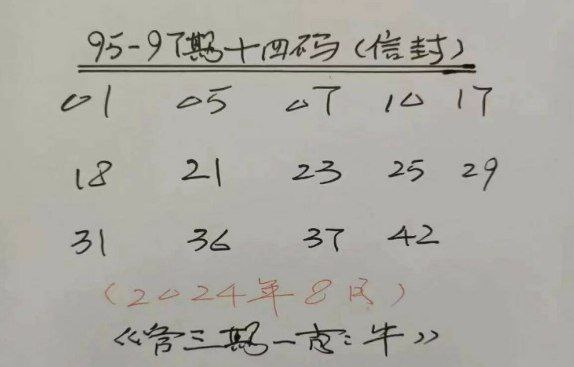 95-97期十四码（信封）
01 05 07 10 17
18 21 23 25 29
31 36 37 42
（2024年8月）
《管三期一肖：牛》